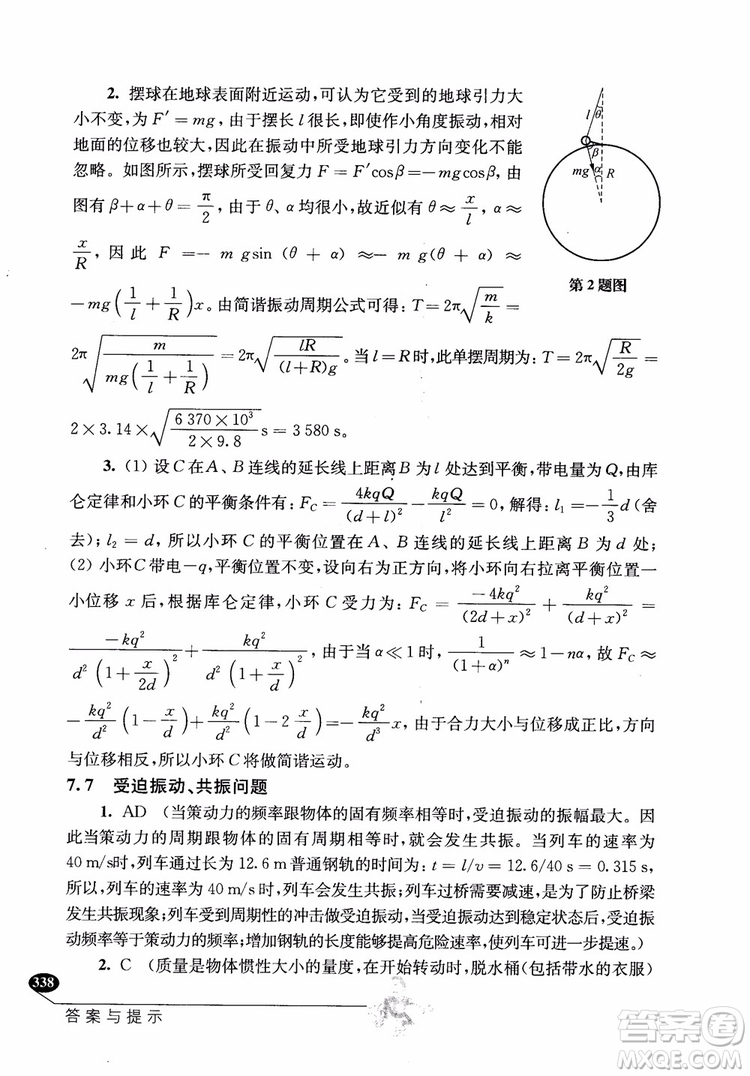 2. 摆球在地球表面附近运动,可认为它受到的地球引力大
小不变,为 F′=mg,由于摆长 l 很长,即使作小角度振动,相对
地面的位移也较大,因此在振动中所受地球引力方向变化不能
忽略。如图所示,摆球所受回复力 F=F′cosβ=−mgcosβ,由
图有 β+α+θ=π/2,由于 θ、α 均很小,故近似有 θ≈x/l,α≈
x/R,因此 F=−mgsin(θ+α)≈−mg(θ+α)≈
−mg(1/l+1/R)x。由简谐振动周期公式可得:T=2π√(m/k)=
2π√(m/(mg(1/l+1/R)))=2π√(lR/((l+R)g))。当 l=R时,此单摆周期为:T=2π√(R/(2g))=
2×3.14×√((6 370×10³)/(2×9.8)) s=3 580 s。
l
θ
β
mg
α
R
第2题图
3. (1) 设C在A、B连线的延长线上距离B为 l 处达到平衡,带电量为Q,由库
仑定律和小环C的平衡条件有:F_C=4kqQ/(d+l)²−kqQ/l²=0,解得:l₁=−1/3d(舍
去);l₂=d,所以小环C的平衡位置在A、B连线的延长线上距离B为d处;
(2) 小环C带电−q,平衡位置不变,设向右为正方向,将小环向右拉离平衡位置一
小位移 x 后,根据库仑定律,小环C受力为:F_C=−4kq²/(2d+x)²+kq²/(d+x)²=
−kq²/(d²(1+x/2d)²)+kq²/(d²(1+x/d)²),由于当 α≪1 时,1/(1+α)ⁿ≈1−nα,故 F_C≈
−kq²/d²(1−x/d)+kq²/d²(1−2x/d)=−kq²/d³x,由于合力大小与位移成正比,方向
与位移相反,所以小环C将做简谐运动。
7.7 受迫振动、共振问题
1. AD (当策动力的频率跟物体的固有频率相等时,受迫振动的振幅最大。因
此当策动力的周期跟物体的固有周期相等时,就会发生共振。当列车的速率为
40 m/s时,列车通过长 12.6 m普通钢轨的时间为:t=l/v=12.6/40 s=0.315 s,
所以,列车的速率为 40 m/s时,列车会发生共振;列车过桥需要减速,是为了防止桥梁
发生共振现象;列车受到周期性的冲击做受迫振动,当受迫振动达到稳定状态后,受迫振
动频率等于策动力的频率;增加钢轨的长度能够提高危险速率,使列车可进一步提速。)
2. C (质量是物体惯性大小的量度,在开始转动时,脱水桶(包括带水的衣服)
338
答案与提示
答案圈
MXQE.COM